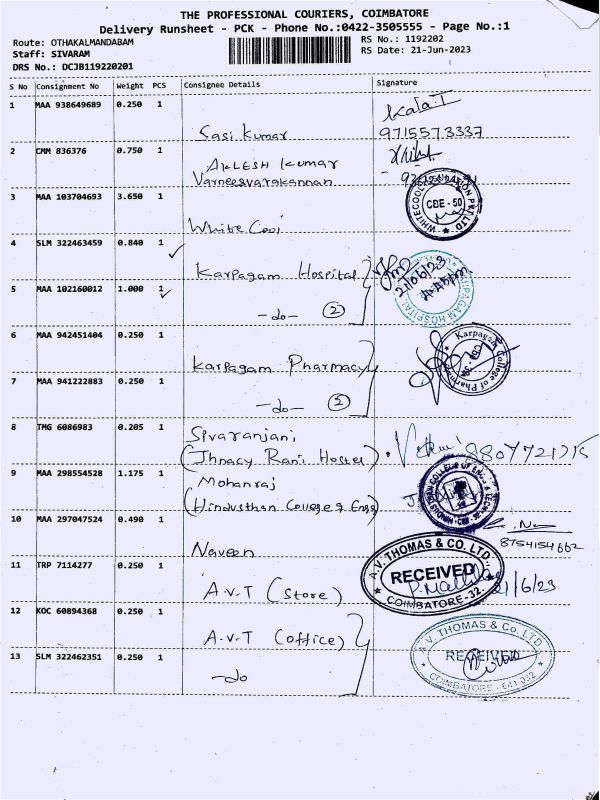 THE PROFESSIONAL COURIERS, COIMBATORE
Delivery Runsheet - PCK - Phone No.:0422-3505555 - Page No.:1
Route: OTHAKALMANDABAM
RS No.: 1192202
Staff: SIVARAM
RS Date: 21-Jun-2023
DRS No.: DCJB119220201
S No Consignment No Weight PCS Consignee Details Signature
1 MAA 938649689 0.250 1
Kala.T
Sasi Kumar 9715573337
2 CMM 836376 0.750 1
AKLESH Kumar
Varneesvarakannan
3 MAA 103704693 3.650 1
White Cool
WHITECOOL PVT.LTD
CBE - 50
4 SLM 322463459 0.840 1
Karpagam Hospital
KARPAGAM HOSPITAL
21/06/23
5 MAA 102160012 1.000 1
-do- (2)
6 MAA 942451404 0.250 1
Karpagam Pharmacy
Karpagam College of Pharmacy
7 MAA 941222883 0.250 1
-do- (2)
8 TMG 6086983 0.205 1
Sivaranjani
(Jhnacy Rani Hostel)
9 MAA 298554528 1.175 1
Mohanraj
(Hindusthan College of Engg)
10 MAA 297047524 0.490 1
8754154662
Naveen
11 TRP 7114277 0.250 1
A.V.T (Store)
A.V. THOMAS & CO. LTD.
RECEIVED
COIMBATORE-32.
21/6/23
12 KOC 60894368 0.250 1
A.V.T (office)
A.V. THOMAS & Co. LTD
RECEIVED
COIMBATORE - 641 032
13 SLM 322462351 0.250 1
-do